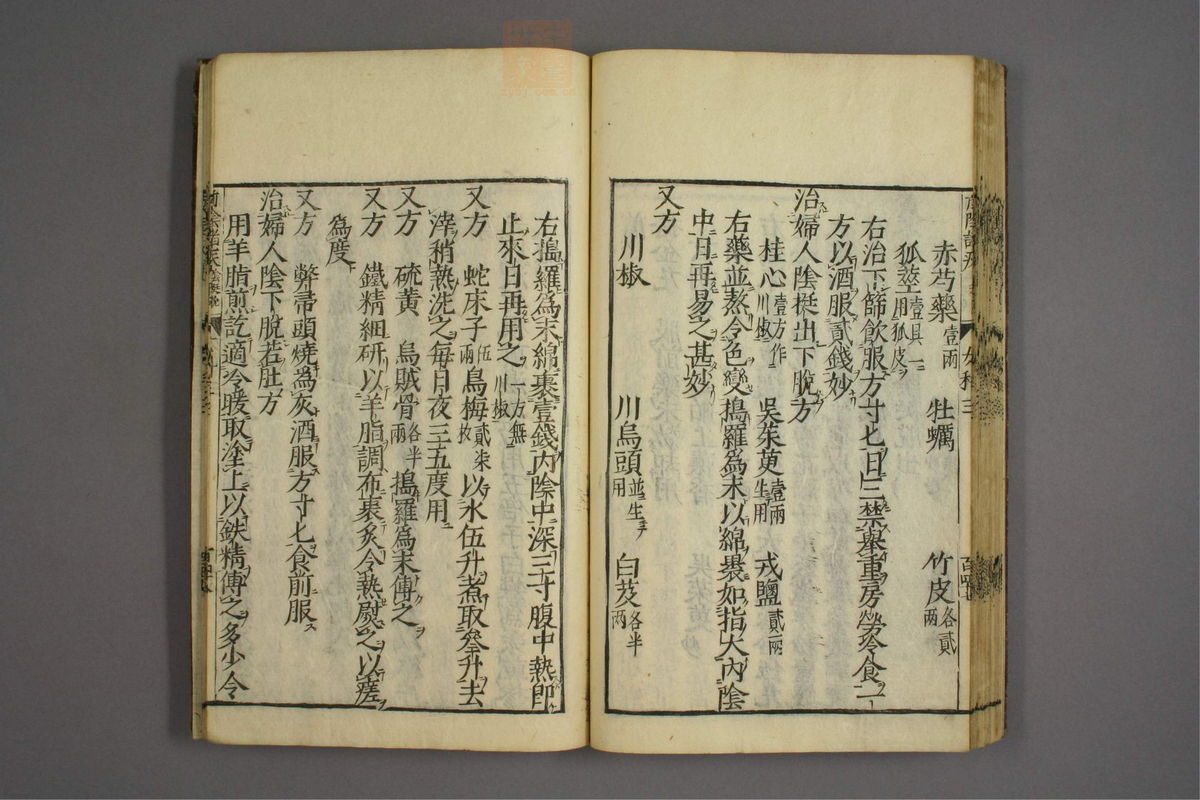 赤芍藥壹兩　牡蠣　竹皮各貳兩
狐莖壹具一用狐皮
右治下篩飲服方寸匕日三禁舉重房勞冷食一
方以酒服貳錢妙
治婦人陰挺出下脫方
桂心壹方作川椒　吳茱萸壹兩生用　戎鹽貳兩
右藥並熬令色變搗羅為末以綿裹如指大內陰
中日再易之甚妙
又方
川椒　川烏頭並生用　白芨各半兩
右搗羅為末綿裹壹錢內陰中深三寸腹中熱即
止來日再用之一方無川椒
又方　蛇床子伍兩烏梅貳柒枚以水伍升煮取參升去
滓稍熱洗之每日夜三五度用
又方　硫黃　烏賊骨各半兩　搗羅為末傅之
又方　鐵精細研以羊脂調布裹炙令熱熨之以瘥
為度
又方　弊帚頭燒為灰酒服方寸匕食前服
治婦人陰下脫若肚方
用羊脂煎訖適冷暖取塗上以鉄精傅之多少令